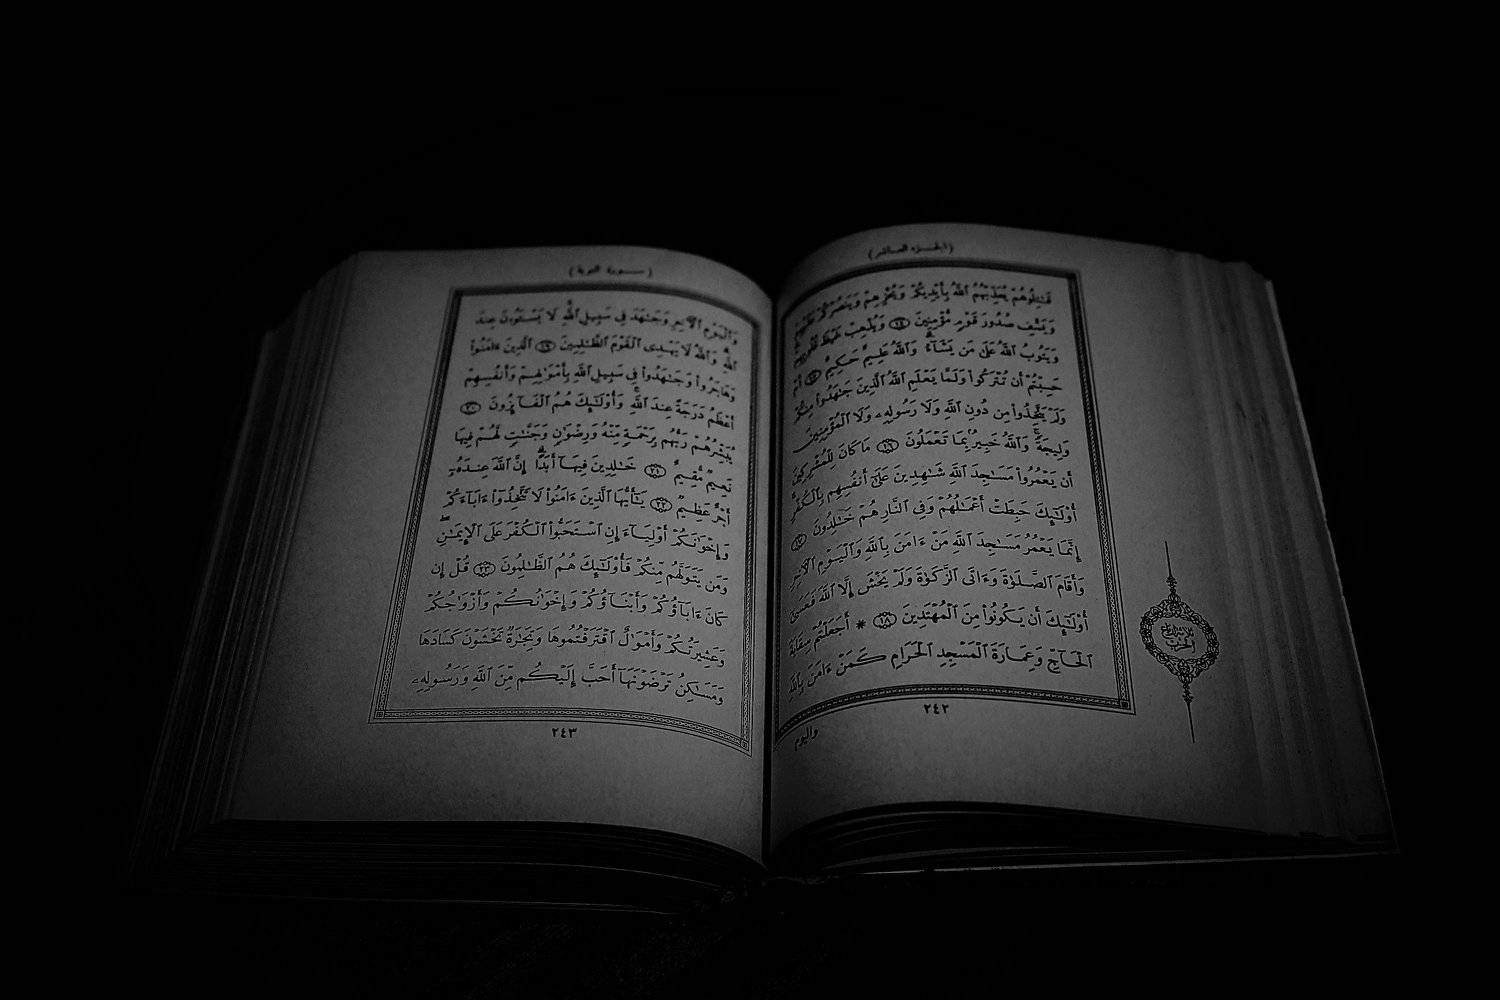 (الجزء العاشر)
قَٰتِلُوهُمْ يُعَذِّبْهُمُ ٱللَّهُ بِأَيْدِيكُمْ وَيُخْزِهِمْ وَيَنصُرْكُمْ عَلَيْهِمْ
وَيَشْفِ صُدُورَ قَوْمٍ مُّؤْمِنِينَ ١٤ وَيُذْهِبْ غَيْظَ قُلُوبِهِمْ
وَيَتُوبُ ٱللَّهُ عَلَىٰ مَن يَشَآءُ وَٱللَّهُ عَلِيمٌ حَكِيمٌ ١٥ أَمْ
حَسِبْتُمْ أَن تُتْرَكُوا۟ وَلَمَّا يَعْلَمِ ٱللَّهُ ٱلَّذِينَ جَٰهَدُوا۟ مِنكُمْ
وَلَمْ يَتَّخِذُوا۟ مِن دُونِ ٱللَّهِ وَلَا رَسُولِهِۦ وَلَا ٱلْمُؤْمِنِينَ
وَلِيجَةً وَٱللَّهُ خَبِيرٌۢ بِمَا تَعْمَلُونَ ١٦ مَا كَانَ لِلْمُشْرِكِينَ
أَن يَعْمُرُوا۟ مَسَٰجِدَ ٱللَّهِ شَٰهِدِينَ عَلَىٰٓ أَنفُسِهِم بِٱلْكُفْرِ
أُو۟لَٰٓئِكَ حَبِطَتْ أَعْمَٰلُهُمْ وَفِى ٱلنَّارِ هُمْ خَٰلِدُونَ ١٧
إِنَّمَا يَعْمُرُ مَسَٰجِدَ ٱللَّهِ مَنْ ءَامَنَ بِٱللَّهِ وَٱلْيَوْمِ ٱلْءَاخِرِ
وَأَقَامَ ٱلصَّلَوٰةَ وَءَاتَى ٱلزَّكَوٰةَ وَلَمْ يَخْشَ إِلَّا ٱللَّهَ فَعَسَىٰٓ
أُو۟لَٰٓئِكَ أَن يَكُونُوا۟ مِنَ ٱلْمُهْتَدِينَ ١٨ * أَجَعَلْتُمْ سِقَايَةَ
ٱلْحَآجِّ وَعِمَارَةَ ٱلْمَسْجِدِ ٱلْحَرَامِ كَمَنْ ءَامَنَ بِٱللَّهِ
٢٤٢
واليوم
ثلاثة أرباع
الحزب
(سورة التوبة)
وَٱلْيَوْمِ ٱلْءَاخِرِ وَجَٰهَدَ فِى سَبِيلِ ٱللَّهِ لَا يَسْتَوُۥنَ عِندَ
ٱللَّهِ وَٱللَّهُ لَا يَهْدِى ٱلْقَوْمَ ٱلظَّٰلِمِينَ ١٩ ٱلَّذِينَ ءَامَنُوا۟
وَهَاجَرُوا۟ وَجَٰهَدُوا۟ فِى سَبِيلِ ٱللَّهِ بِأَمْوَٰلِهِمْ وَأَنفُسِهِمْ
أَعْظَمُ دَرَجَةً عِندَ ٱللَّهِ وَأُو۟لَٰٓئِكَ هُمُ ٱلْفَآئِزُونَ ٢٠
يُبَشِّرُهُمْ رَبُّهُم بِرَحْمَةٍ مِّنْهُ وَرِضْوَٰنٍ وَجَنَّٰتٍ لَّهُمْ فِيهَا
نَعِيمٌ مُّقِيمٌ ٢١ خَٰلِدِينَ فِيهَآ أَبَدًا إِنَّ ٱللَّهَ عِندَهُۥٓ
أَجْرٌ عَظِيمٌ ٢٢ يَٰٓأَيُّهَا ٱلَّذِينَ ءَامَنُوا۟ لَا تَتَّخِذُوٓا۟ ءَابَآءَكُمْ
وَإِخْوَٰنَكُمْ أَوْلِيَآءَ إِنِ ٱسْتَحَبُّوا۟ ٱلْكُفْرَ عَلَى ٱلْإِيمَٰنِ
وَمَن يَتَوَلَّهُم مِّنكُمْ فَأُو۟لَٰٓئِكَ هُمُ ٱلظَّٰلِمُونَ ٢٣ قُلْ إِن
كَانَ ءَابَآؤُكُمْ وَأَبْنَآؤُكُمْ وَإِخْوَٰنُكُمْ وَأَزْوَٰجُكُمْ
وَعَشِيرَتُكُمْ وَأَمْوَٰلٌ ٱقْتَرَفْتُمُوهَا وَتِجَٰرَةٌ تَخْشَوْنَ كَسَادَهَا
وَمَسَٰكِنُ تَرْضَوْنَهَآ أَحَبَّ إِلَيْكُم مِّنَ ٱللَّهِ وَرَسُولِهِۦ
٢٤٣